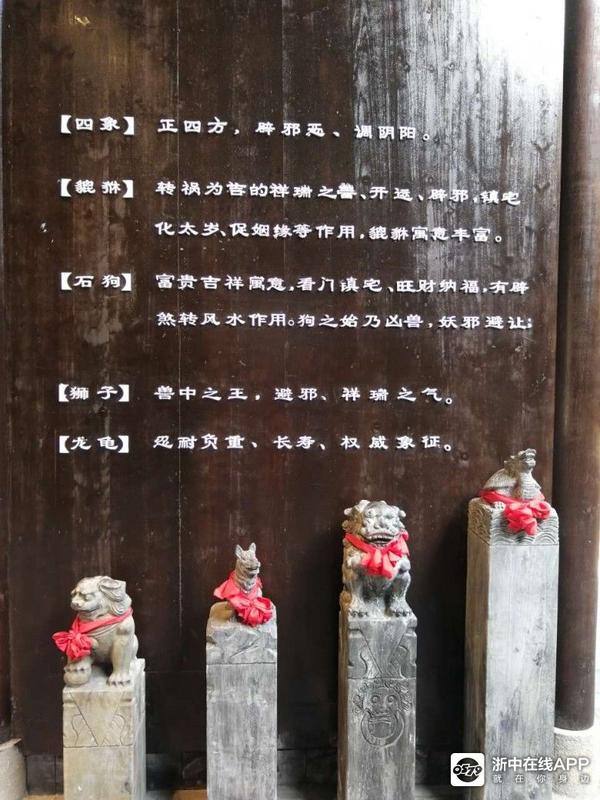 【四象】 正四方，辟邪恶、调阴阳。
【貔貅】 转祸为吉的祥瑞之兽、开运、辟邪，镇宅
化太岁、促姻缘等作用，貔貅寓意丰富。
【石狗】 富贵吉祥寓意，看门镇宅、旺财纳福，有辟
煞转风水作用。狗之始乃凶兽，妖邪避让；
【狮子】 兽中之王，避邪、祥瑞之气。
【龙龟】 忍耐负重、长寿、权威象征。
浙中在线APP
就在你身边